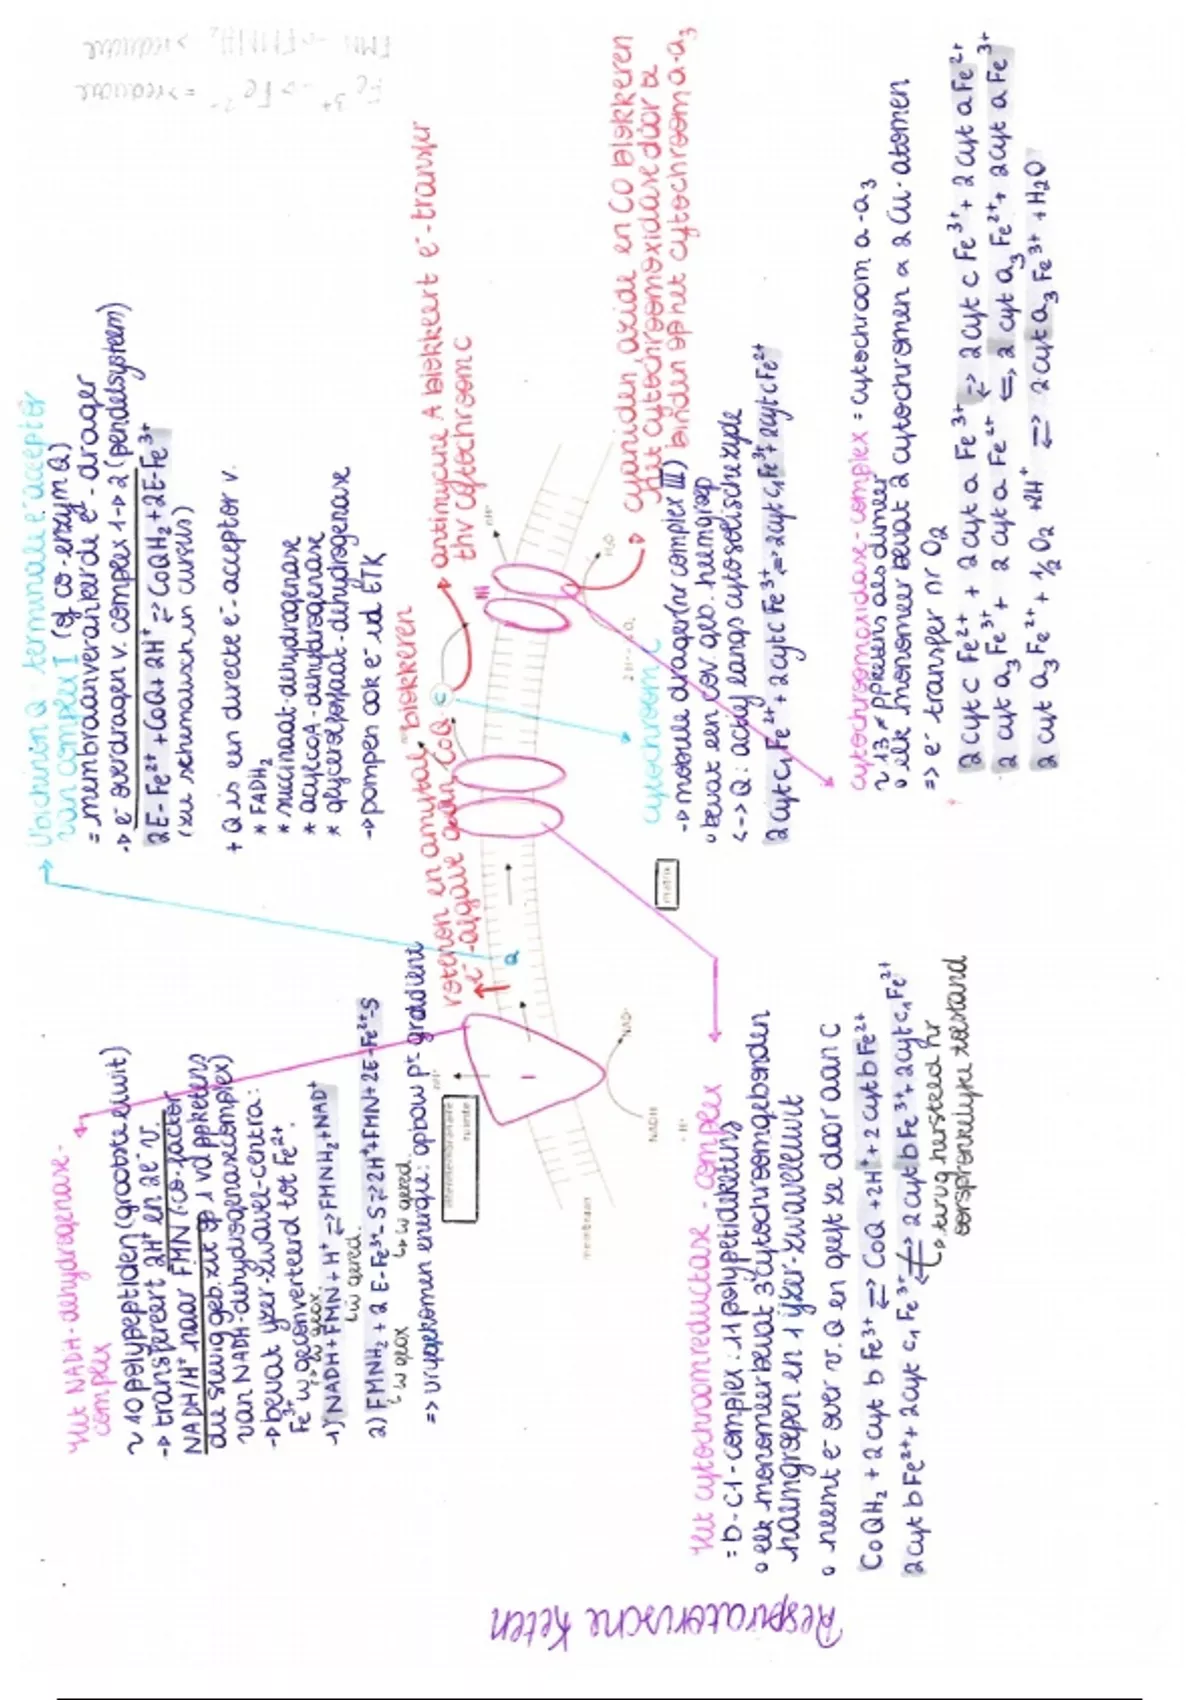 Respiratorische keten
Het NADH-dehydrogenase-
complex
~ 40 polypeptiden (grootste eiwit)
-> transfereert 2H⁺ en 2e⁻ v.
NADH/H⁺ naar FMN (co-factor
die stevig geb. zit op 1 vd ppketens
van NADH-dehydrogenasecomplex)
-> bevat ijzer-zwavel-centra:
Fe³⁺ w geconverteerd tot Fe²⁺.
w geox.
1) NADH + FMN + H⁺ ⇌ FMNH₂ + NAD⁺
w gered.
2) FMNH₂ + 2 E-Fe³⁺-S ⇌ 2H⁺ + FMN + 2E-Fe²⁺-S
w geox
w gered.
=> vrijgekomen energie: opbouw p⁺-gradient
Ubichinon Q terminale e⁻acceptor
van complex I (of co-enzym Q)
= membraanverankerde e⁻-drager
-> e⁻ overdragen v. complex 1->2 (pendelsysteem)
2E-Fe²⁺ + CoQ + 2H⁺ ⇌ CoQH₂ + 2E-Fe³⁺
(zie schematisch in cursus)
+ Q is een directe e⁻-acceptor v.
* FADH₂
* succinaat-dehydrogenase
* acylcoA-dehydrogenase
* glycerolfosfaat-dehydrogenase
-> pompen ook e⁻ id ETK
Fe³⁺ -> Fe²⁺ => reductie
FMN -> FMNH₂ > reductie
rotenon en amytal blokkeren
e⁻-afgave aan CoQ.
antimycine A blokkeert e⁻-transfer
thv cytochroom c
I
Q
C
III
NADH
+ H⁺
NAD⁺
H₂O
matrix
membraan
cyaniden, azide en CO blokkeren
het cytochroomoxidase door te
binden op het cytochroom a-a₃
Het cytochroomreductase-complex
= b-c1-complex: 11 polypeptideketens
o elk monomeer bevat 3 cytochroomgebonden
haemgroepen en 1 ijzer-zwaveleiwit
o neemt e⁻ over v. Q en geeft ze door aan C
CoQH₂ + 2 cyt b Fe³⁺ ⇌ CoQ + 2H⁺ + 2 cyt b Fe²⁺
2 cyt b Fe²⁺ + 2 cyt c₁ Fe³⁺ ⇌ 2 cyt b Fe³⁺ + 2 cyt c₁ Fe²⁺
-> terug hersteld nr
oorspronkelijke toestand
cytochroom C
-> mobiele drager (nr complex III)
o bevat een cov. geb. heemgroep
<-> Q: actief langs cytosolische zijde
2 cyt c₁ Fe²⁺ + 2 cyt c Fe³⁺ ⇌ 2 cyt c₁ Fe³⁺ + 2 cyt c Fe²⁺
cytochroomoxidase-complex = cytochroom a-a₃
~ 13 ≠ ppketens als dimeer
o elk monomeer bevat 2 cytochromen a 2 Cu-atomen
=> e⁻ transfer nr O₂
2 cyt c Fe²⁺ + 2 cyt a Fe³⁺ ⇌ 2 cyt c Fe³⁺ + 2 cyt a Fe²⁺
2 cyt a₃ Fe³⁺ + 2 cyt a Fe²⁺ ⇌ 2 cyt a₃ Fe²⁺ + 2 cyt a Fe³⁺
2 cyt a₃ Fe²⁺ + ½ O₂ + 2H⁺ ⇌ 2 cyt a₃ Fe³⁺ + H₂O